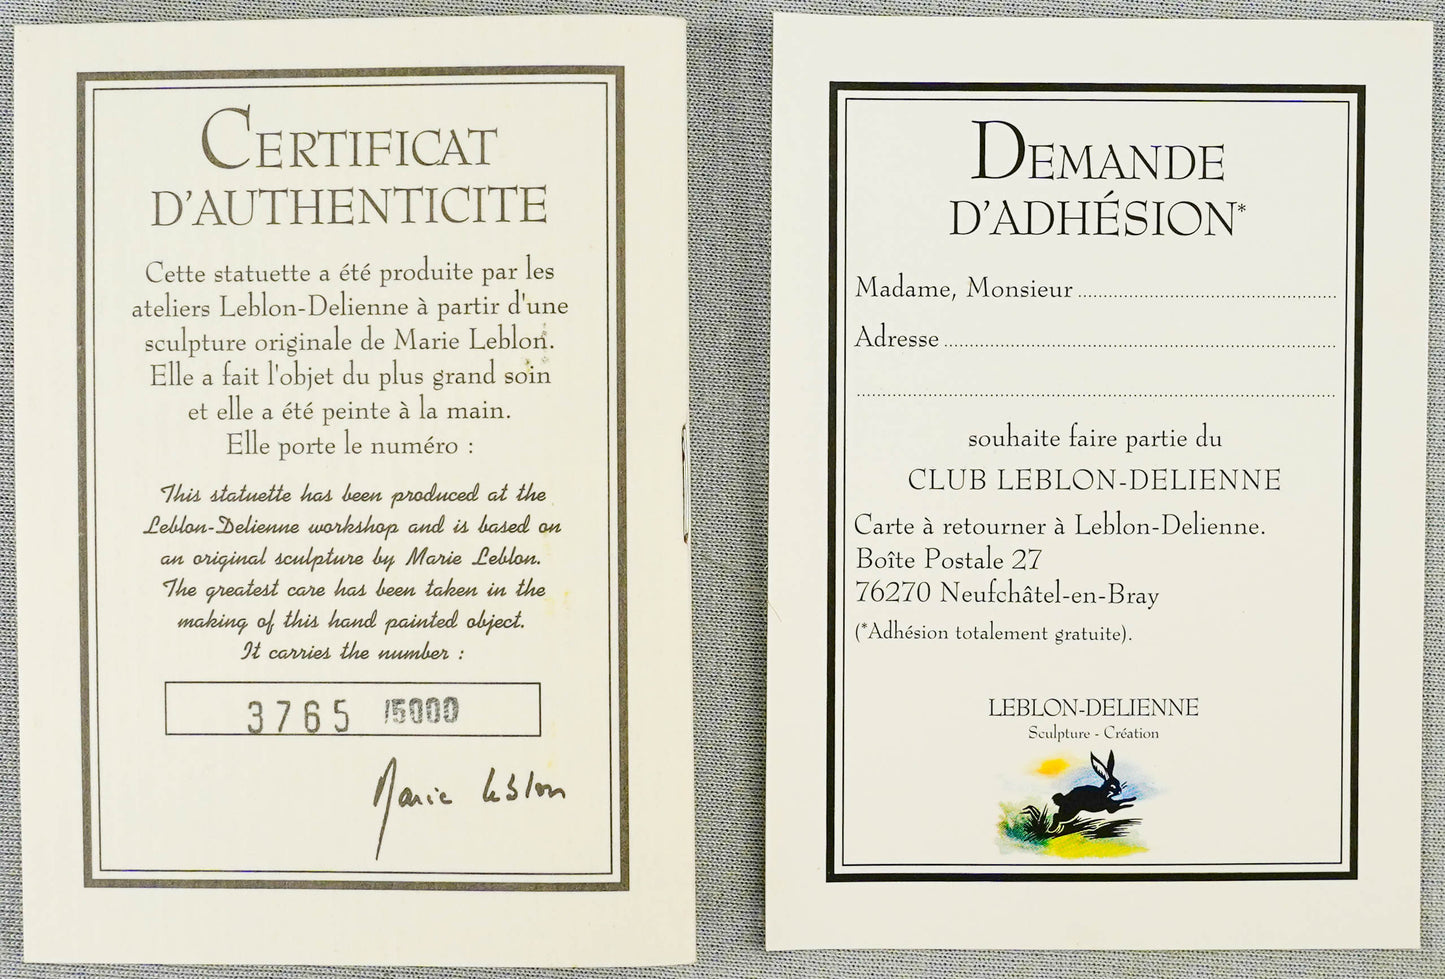 CERTIFICAT
D'AUTHENTICITE
Cette statuette a été produite par les
ateliers Leblon-Delienne à partir d'une
sculpture originale de Marie Leblon.
Elle a fait l'objet du plus grand soin
et elle a été peinte à la main.
Elle porte le numéro :
This statuette has been produced at the
Leblon-Delienne workshop and is based on
an original sculpture by Marie Leblon.
The greatest care has been taken in the
making of this hand painted object.
It carries the number :
3765 /5000
Marie Leblon
DEMANDE
D'ADHÉSION*
Madame, Monsieur
Adresse
souhaite faire partie du
CLUB LEBLON-DELIENNE
Carte à retourner à Leblon-Delienne.
Boîte Postale 27
76270 Neufchâtel-en-Bray
(*Adhésion totalement gratuite).
LEBLON-DELIENNE
Sculpture - Création